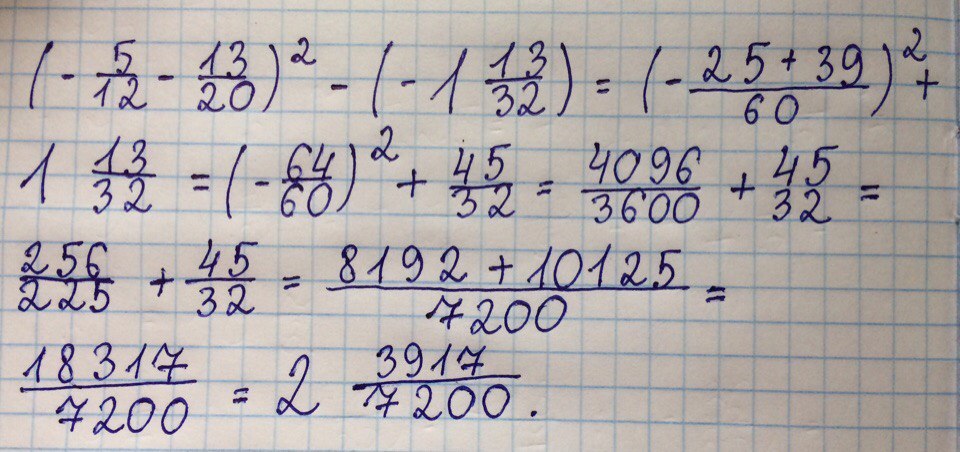 (- 5/12 - 13/20)² - (-1 13/32) = (- (25+39)/60)² +
1 13/32 = (- 64/60)² + 45/32 = 4096/3600 + 45/32 =
256/225 + 45/32 = (8192+10125)/7200 =
18317/7200 = 2 3917/7200.